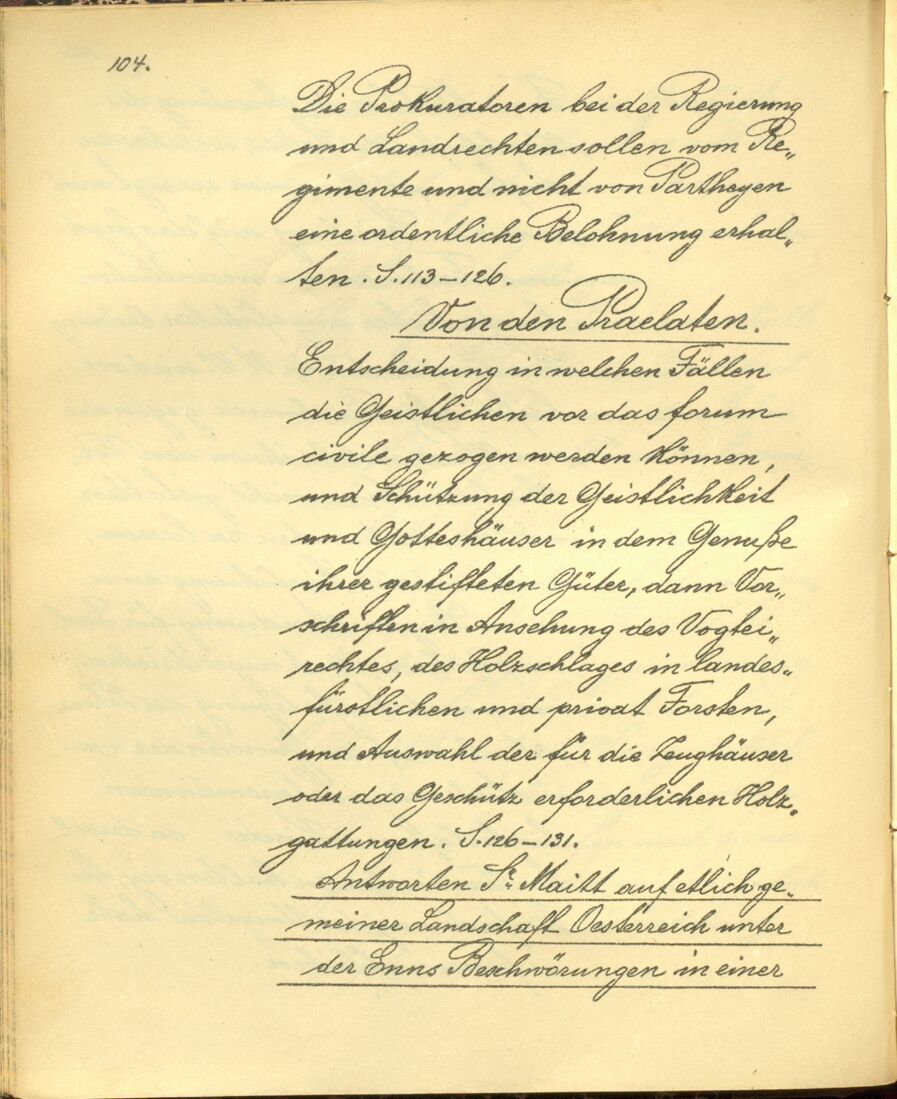 104.
Die Prokuratoren bei der Regierung
und Landrechten sollen vom Re„
gimente und nicht von Partheyen
eine ordentliche Belohnung erhal„
ten. S. 113–126.
Von den Praelaten.
Entscheidung in welchen Fällen
die Geistlichen vor das forum
civile gezogen werden können,
und Schützung der Geistlichkeit
und Gotteshäuser in dem Genuße
ihrer gestifteten Güter, dann Vor„
schriften in Ansehung des Vogtei„
rechtes, des Holzschlages in landes„
fürstlichen und privat Forsten,
und Auswahl der für die Zeughäuser
oder das Geschütz erforderlichen Holz„
gattungen. S. 126–131.
Antworten Sr. Maitt auf etlich ge„
meiner Landschaft Oesterreich unter
der Enns Beschwörungen in einer